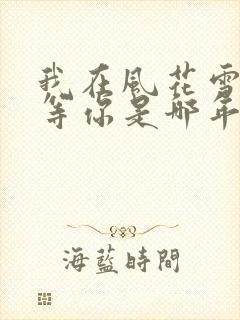 我在風花雪
等你是那年
海藍時間